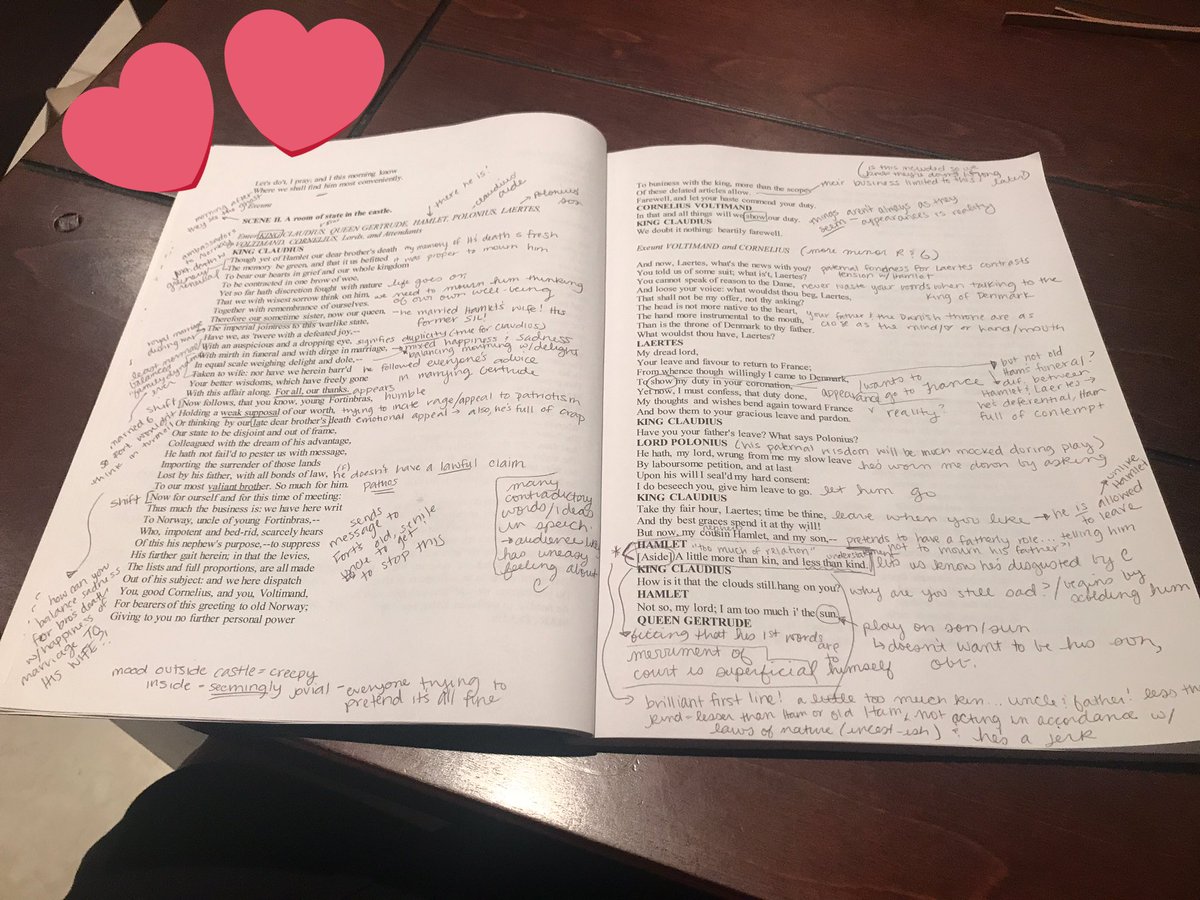 Let's do't, I pray; and I this morning know
Where we shall find him most conveniently.
Exeunt
SCENE II. A room of state in the castle.
there he is!
claudius' aide
Polonius' son
Enter KING CLAUDIUS, QUEEN GERTRUDE, HAMLET, POLONIUS, LAERTES,
VOLTIMAND, CORNELIUS, Lords, and Attendants
KING CLAUDIUS
Though yet of Hamlet our dear brother's death my memory of H's death is fresh
The memory be green, and that it us befitted it was proper to mourn him
To bear our hearts in grief and our whole kingdom
To be contracted in one brow of woe,
Yet so far hath discretion fought with nature life goes on
That we with wisest sorrow think on him, we need to mourn him thinking
Together with remembrance of ourselves. of our own well-being
Therefore our sometime sister, now our queen, - he married Hamlet's wife! his former SIL!
The imperial jointress to this warlike state,
Have we, as 'twere with a defeated joy,-- signifies duplicity (true for claudius)
With an auspicious and a dropping eye, mixed happiness & sadness
With mirth in funeral and with dirge in marriage, balancing mourning w/ delight
In equal scale weighing delight and dole,--
Taken to wife: nor have we herein barr'd he followed everyone's advice
Your better wisdoms, which have freely gone in marrying Gertrude
With this affair along. For all, our thanks. appears humble
Now follows, that you know, young Fortinbras,
Holding a weak supposal of our worth, trying to incite rage/appeal to patriotism
Or thinking by our late dear brother's death emotional appeal → also, he's full of crap
Our state to be disjoint and out of frame,
Colleagued with the dream of his advantage,
He hath not fail'd to pester us with message,
Importing the surrender of those lands
Lost by his father, with all bonds of law, he doesn't have a lawful claim
To our most valiant brother. So much for him. pathos
Now for ourself and for this time of meeting:
Thus much the business is: we have here writ
To Norway, uncle of young Fortinbras,--
Who, impotent and bed-rid, scarcely hears
Of this his nephew's purpose,--to suppress
His further gait herein; in that the levies,
The lists and full proportions, are all made
Out of his subject: and we here dispatch
You, good Cornelius, and you, Voltimand,
For bearers of this greeting to old Norway;
Giving to you no further personal power
sends
message to
Fort's old, senile
uncle to get
to stop this
many
contradictory
words/ideas
in speech.
→ audience
has uneasy
feeling about
C
shift
shift
how can you
balance sadness
for bro's death
w/ happiness of
marriage TO
HIS WIFE?!
mood outside castle = creepy
inside - seemingly jovial - everyone trying to
pretend it's all fine
To business with the king, more than the scope their business limited to this
Of these delated articles allow.
Farewell, and let your haste commend your duty.
CORNELIUS VOLTIMAND
In that and all things will we show our duty. things aren't always as they
KING CLAUDIUS seem - appearances vs reality
We doubt it nothing: heartily farewell.
Exeunt VOLTIMAND and CORNELIUS (more minor R & G)
And now, Laertes, what's the news with you? paternal fondness for Laertes contrasts
You told us of some suit; what is't, Laertes? tension w/ Hamlet
You cannot speak of reason to the Dane, never waste your words when talking to the
And loose your voice: what wouldst thou beg, Laertes, King of Denmark
That shall not be my offer, not thy asking?
The head is not more native to the heart,
The hand more instrumental to the mouth, your father & the Danish throne are as
Than is the throne of Denmark to thy father. close as the mind/♡ or hand/mouth
What wouldst thou have, Laertes?
LAERTES
My dread lord,
Your leave and favour to return to France;
From whence though willingly I came to Denmark,
To show my duty in your coronation,
Yet now, I must confess, that duty done,
My thoughts and wishes bend again toward France
And bow them to your gracious leave and pardon.
wants to go to France
appearance v reality?
but not old
Ham's funeral?
dif. between
Hamlet & Laertes →
deferential, Ham
full of contempt
KING CLAUDIUS
Have you your father's leave? What says Polonius?
LORD POLONIUS (his paternal wisdom will be much mocked during play)
He hath, my lord, wrung from me my slow leave he's worn me down by asking
By laboursome petition, and at last
Upon his will I seal'd my hard consent:
I do beseech you, give him leave to go. let him go
KING CLAUDIUS
Take thy fair hour, Laertes; time be thine, leave when you like → he is allowed to leave
unlike Hamlet
And thy best graces spend it at thy will!
nephew
But now, my cousin Hamlet, and my son,-- pretends to have a fatherly role... telling him
HAMLET "too much of relation" not to mourn his father?
[Aside] A little more than kin, and less than kind. lets us know he's disgusted by C
KING CLAUDIUS
How is it that the clouds still hang on you? why are you still sad?/begins by scolding him
HAMLET
Not so, my lord; I am too much i' the sun. play on son/sun
QUEEN GERTRUDE → doesn't want to be his son, obv.
fitting that his 1st words are to himself
merriment of court is superficial
brilliant first line! a little too much kin... uncle & father! less than
kind - lesser than Ham or old Ham, not acting in accordance w/
laws of nature (incest-ish) & he's a jerk